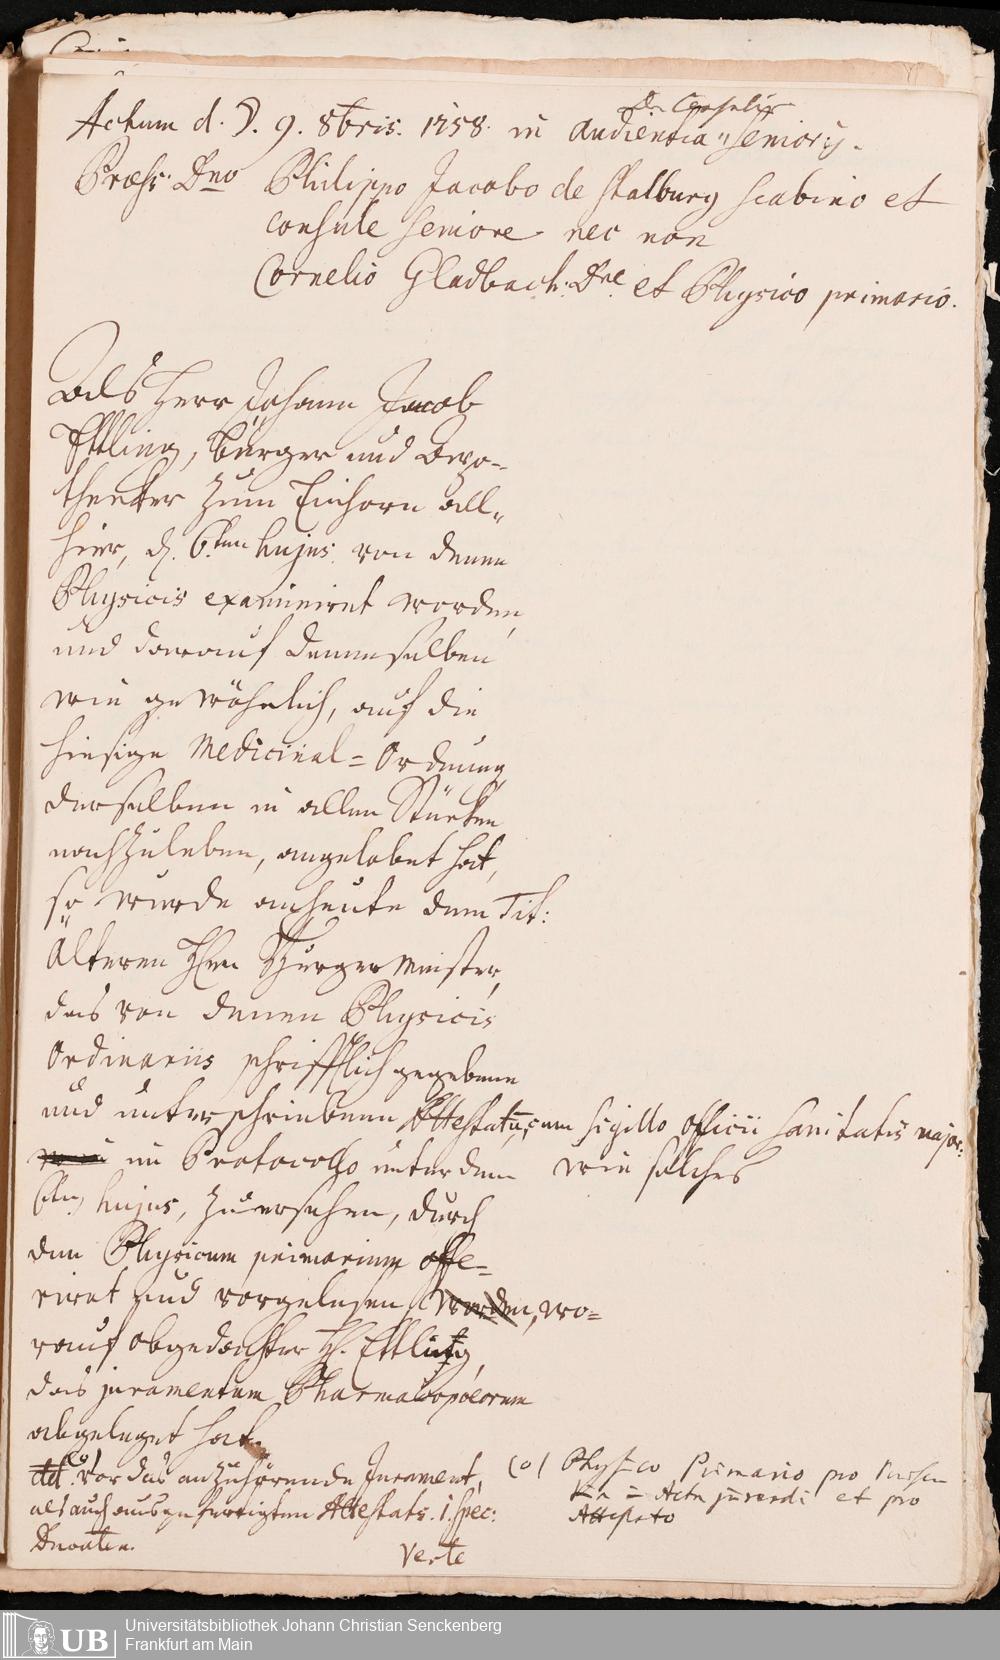 Actum d. ☽. 9. 8bris. 1758. in Audientia Dn Consulis senioris.
Præss: Dno Philippo Jacobo de Stalburg Scabino et
Consule Seniore nec non
Cornelio Gladbach: Dre et Physico primario.
Als Herr Johann Jacob
Ettling, Bürger und Apo-
thecker zum Einhorn all-
hier, d. 6.ten hujus von denen
Physicis examiniret worden,
und darauf denenselben
wie gewöhnlich, auf die
hiesige Medicinal-Ordnung,
derselben in allen Stücken
nachzuleben, angelobet hat,
so wurde anheute dem Tit:
älteren Hrn Burgermeister,
das von denen Physicis
Ordinariis schrifftlich gegebene
und unterschriebene Attestatum cum sigillo officii sanitatis major:
im Protocollo unter dem wie solches
6ten hujus, zu ersehen, durch
den Physicum primarium offe-
riret und vorgelesen worden, wo-
rauf obgedachter H. Ettling,
das juramentum Pharmacopoeorum
abgeleget hat.
dd. (o) Vor das anzuhörende Jurament,
als auch ausgefertigten Attestats. 1. spec:
Ducaten.
(o) Physico Primario pro
Actu jurandi et pro
Attestato
Verte
UB Universitätsbibliothek Johann Christian Senckenberg
Frankfurt am Main